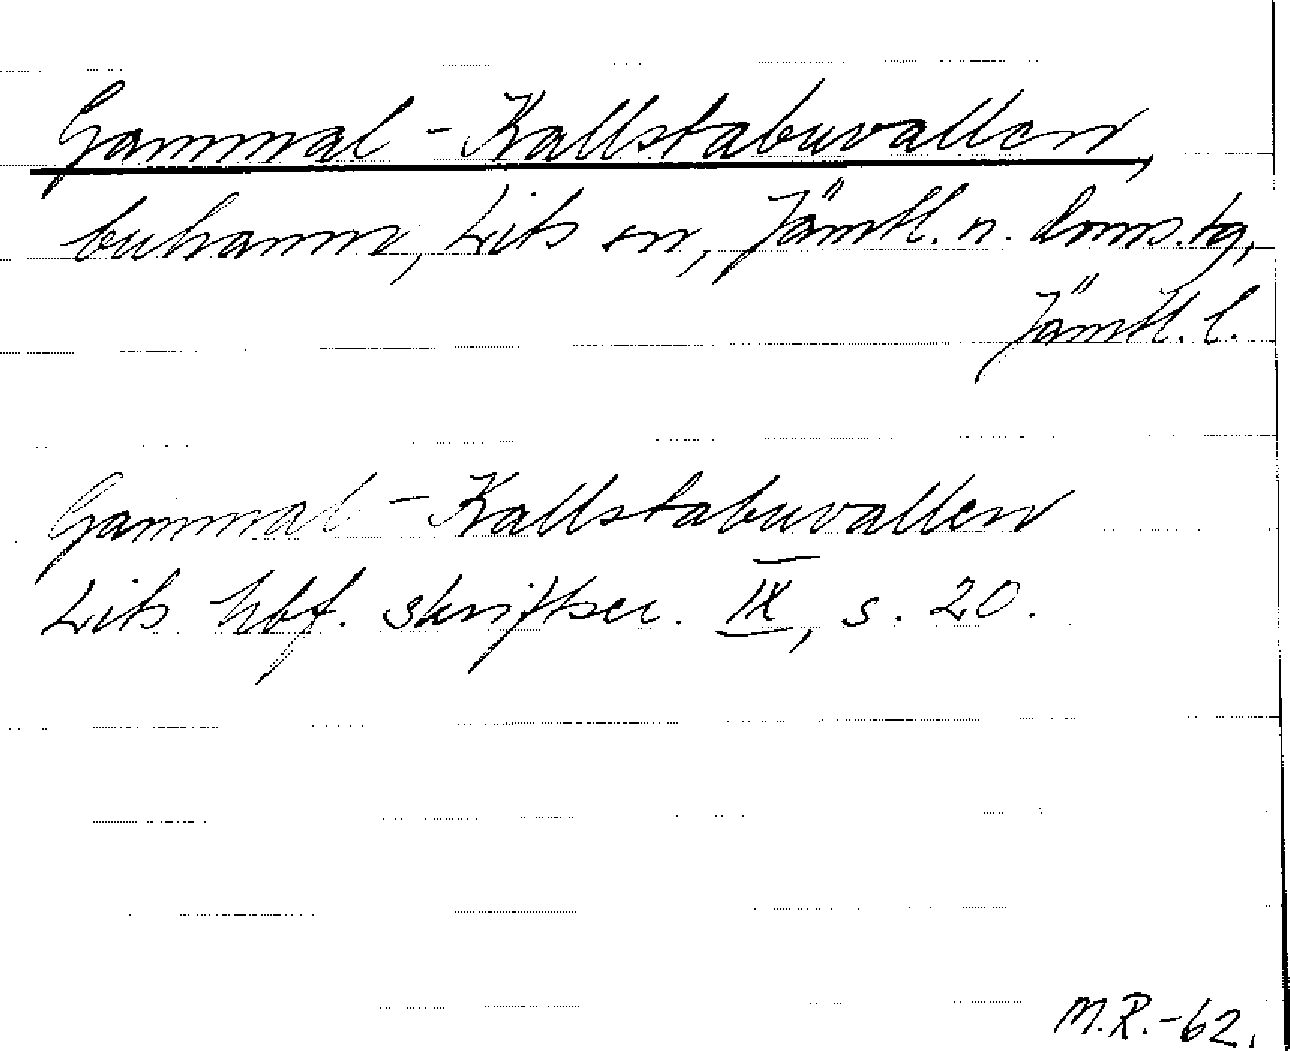 Gammal-Kallstabuvallen,
buhamn, Lits sn, Jämtl. n. doms.tg,
Jämtl. l.
Gammal-Kallstabuvallen
Lits hbf. skriftser. IX, s. 20.
M.R.-62.